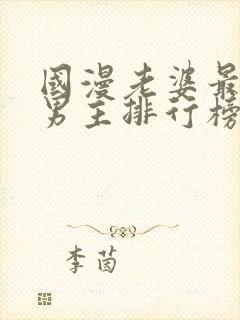 國漫老婆最
男主排行榜
李茵